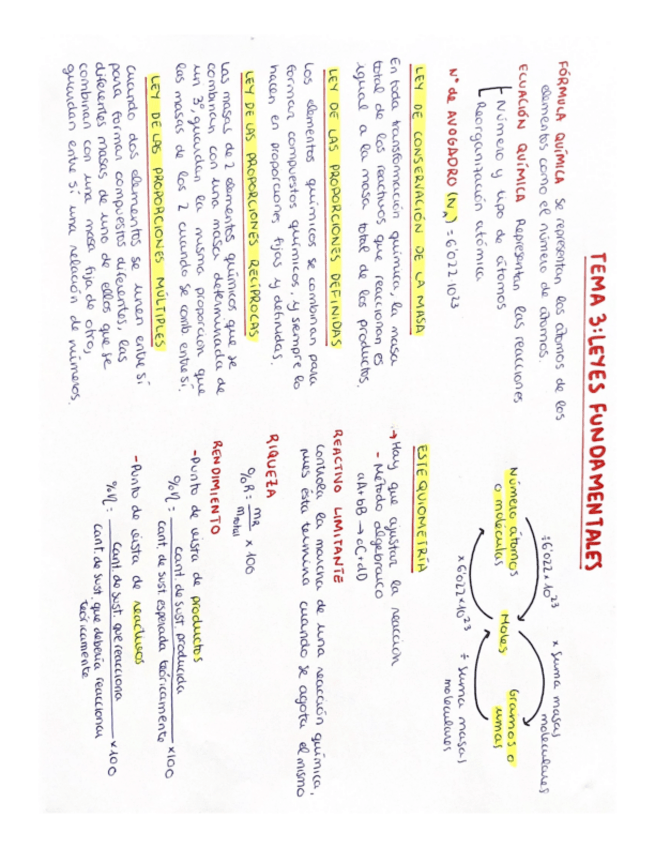 TEMA 3: LEYES FUNDAMENTALES
FÓRMULA QUÍMICA se representan los átomos de los
elementos como el número de átomos.
ECUACIÓN QUÍMICA Representan las reacciones
Número y tipo de átomos
Reorganización atómica
Nº de AVOGADRO (NA) = 6'022 10 23
LEY DE CONSERVACIÓN DE LA MASA
En toda transformación química, la masa
total de los reactivos que reaccionan es
igual a la masa total de los productos.
LEY DE LAS PROPORCIONES DEFINIDAS
Los elementos químicos se combinan para
formar compuestos químicos, y siempre lo
hacen en proporciones fijas y definidas.
LEY DE LAS PROPORCIONES RECÍPROCAS
Las masas de 2 elementos químicos que se
combinan con una masa determinada de
un 3º, guardan la misma proporción que
las masas de los 2 cuando se comb entre sí.
LEY DE LAS PROPORCIONES MÚLTIPLES
Cuando dos elementos se unen entre sí
para formar compuestos diferentes, las
diferentes masas de uno de ellos que se
combinan con una masa fija de otro,
guardan entre sí una relación de números.
÷6'022×10 23
× suma masas
moleculares
Número átomos
o moléculas
Moles
Gramos o
umas
×6'022×10 23
÷ suma masas
moleculares
ESTEQUIOMETRÍA
→ Hay que ajustar la reacción
- Método algebraico
aA+bB → cC+dD
REACTIVO LIMITANTE
Controla la marcha de una reacción química,
pues ésta termina cuando se agota el mismo
RIQUEZA
%R = mR / mtotal × 100
RENDIMIENTO
- Punto de vista de productos
%η = cant. de sust. producida / cant. de sust. esperada teóricamente ×100
- Punto de vista de reactivos
%η = cant. de sust. que reacciona / cant. de sust. que debería reaccionar ×100
teóricamente